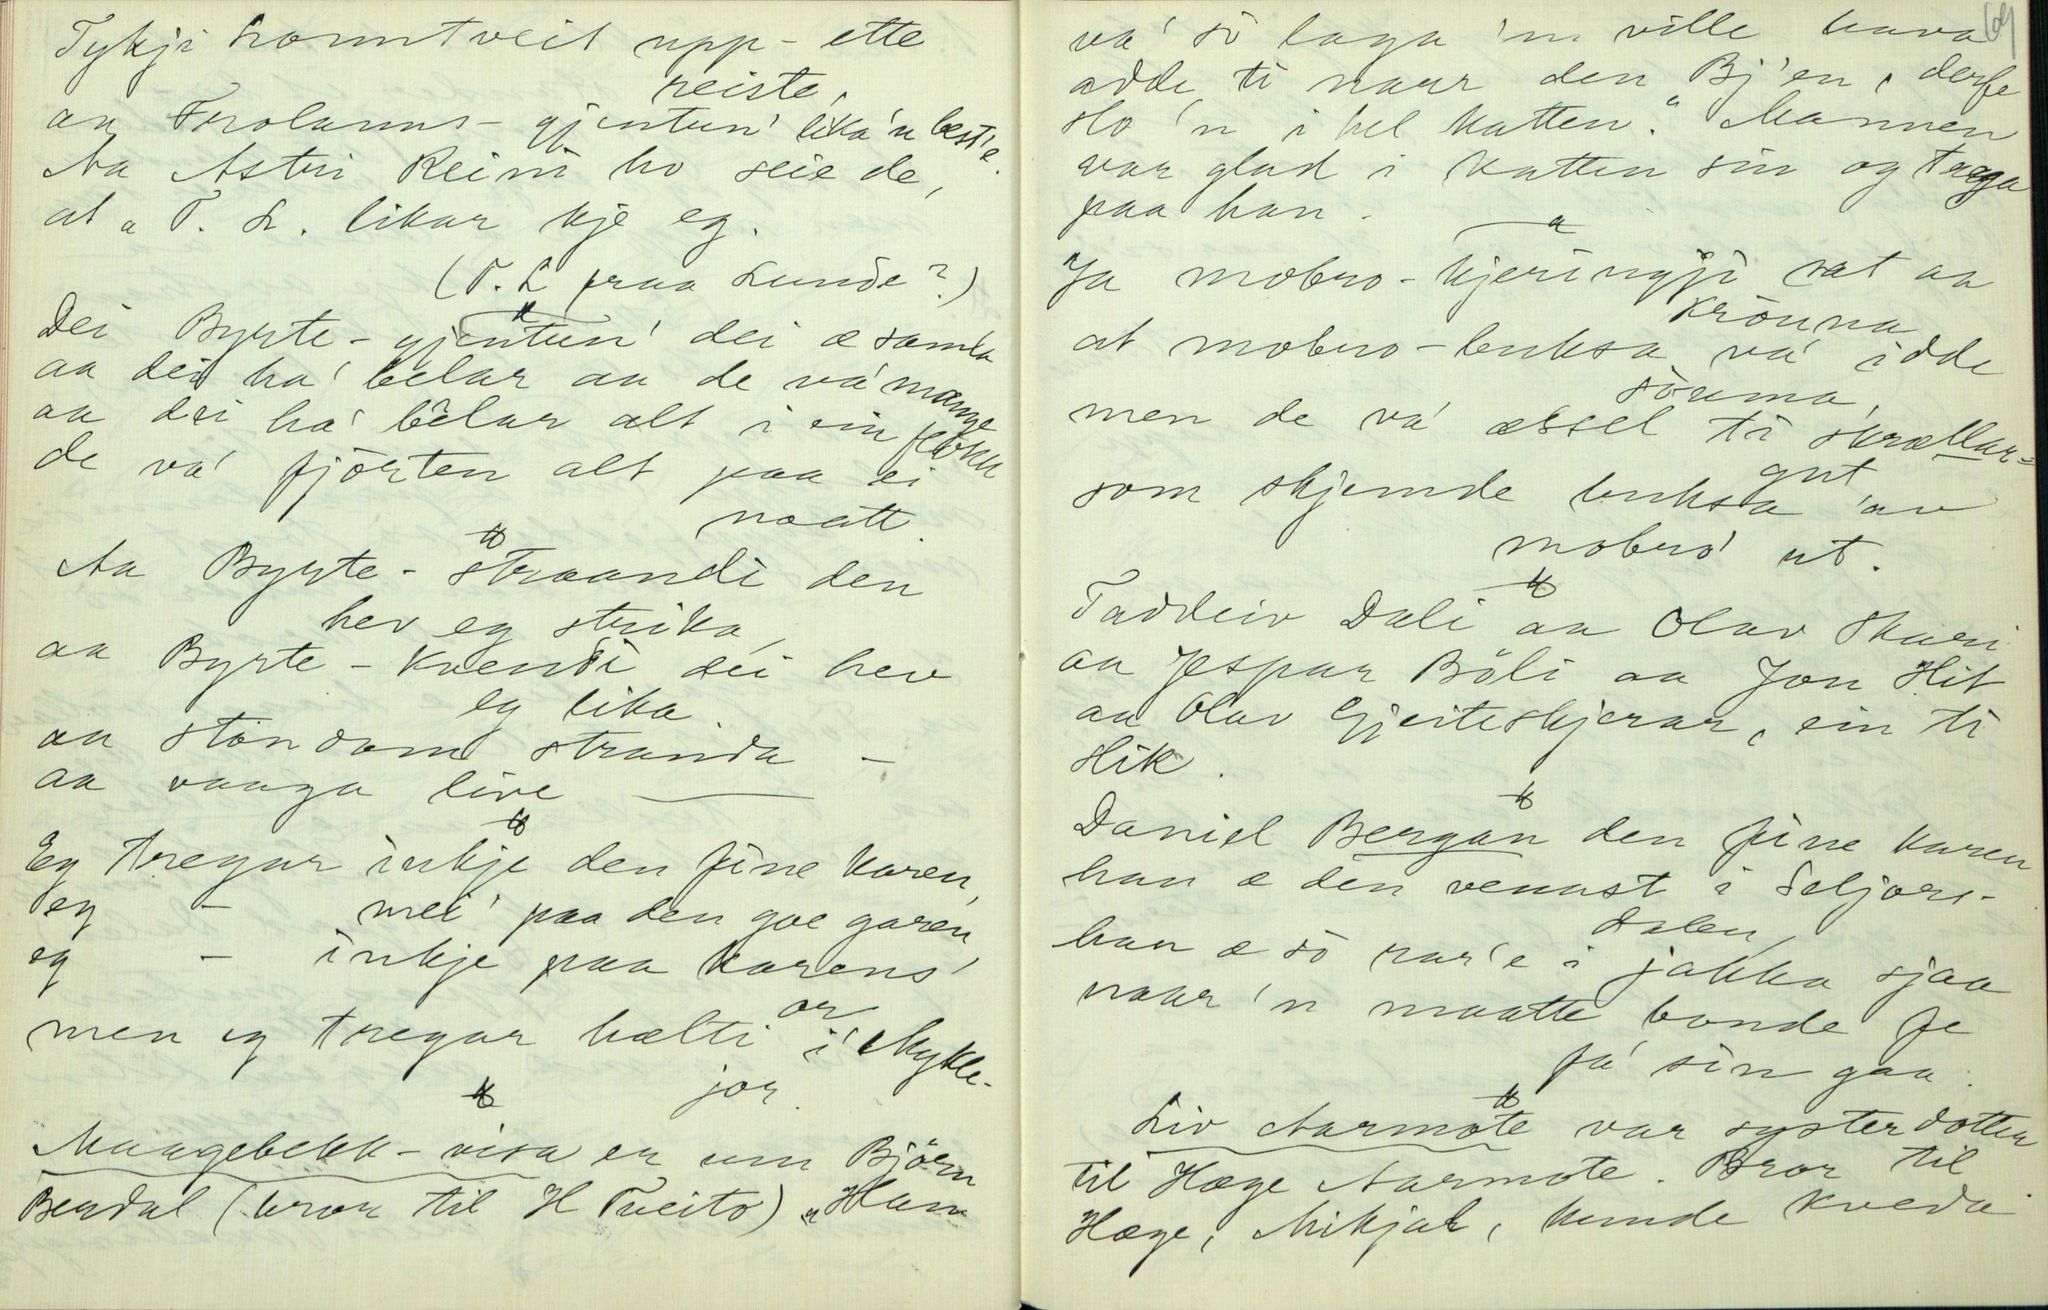 Tykji Homtveit upp-ette
reiste,
aa Frolanns-gjentun' lika'n best'e.
Aa Astri Reini ho seie de,
at "T. L. likar kje eg.
(T. L fraa Lunde?)
Dei Byrte-gjentun' dei æ samla
aa dei ha' bêlar aa de va' mange
aa dei ha' bêlar alt i ein flokk
de va' fjorten alt paa ei
naatt.
Aa Byrte-straandi den
hev eg strika,
aa Byrte-kvendi dei hev
eg lika.
aa stondom stranda –
aa vaaga live ——
Eg tregar inkje den fine karen,
eg – mei' paa den goe garen,
eg – inkje paa karens'
or
men eg tregar hælti i Mykle-
jor.
Maagebekk-visa er um Björn
Bendal (bror til H Tveito) "Han
69
va' so laga 'm ville hava
adde ti naar den Bj'en, derfe
slo 'n i hel katten." Mannen
var glad i katten sin og trega
paa han.
Ja mobro-kjeringji sat aa
krönna
at mobro-buksa va' idde
söuma,
men de va' æssel ti skrællar=
gut
som skjemde buksa 'av
mobro' ut.
Taddeiv Dali aa Olav Skari
aa Jespar Böli aa Jon Hit
aa Olav Gjeiteskjerar, ein ti
slik.
Daniel Bergan den fine karen
han æ den vennst i Seljors-
dalen,
han æ so rar'e i jakka sjaa
naar 'n maatte bonde fe
fá' sin gaa.
Liv Aarmote var systerdotter
til Hæge Aarmote. Bror til
Hæge, Mikjal, kunde kveda